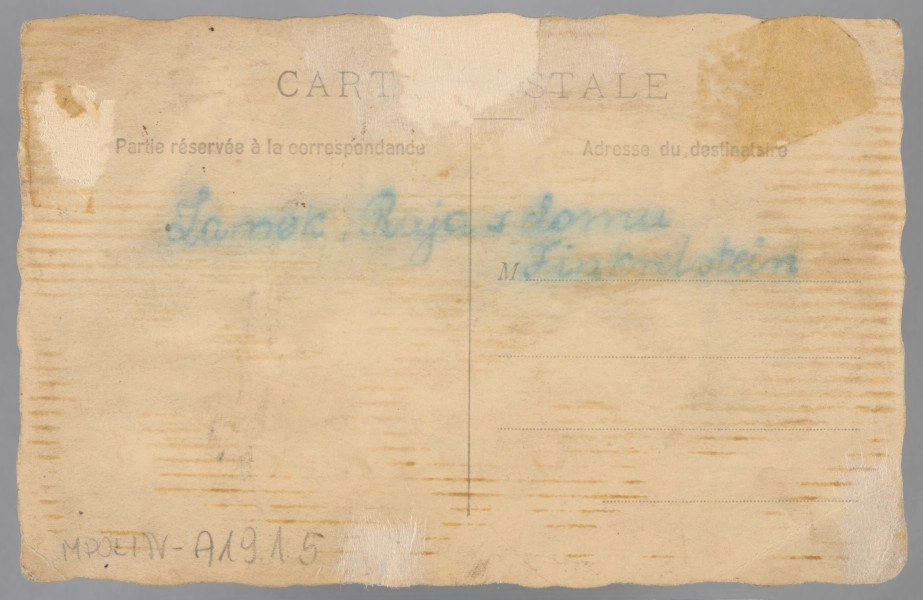 CART STALE
Partie réservée à la correspondance
Adresse du destinataire
Ruja z domu
M Finkielstein
MPOLIN-A19.1.5